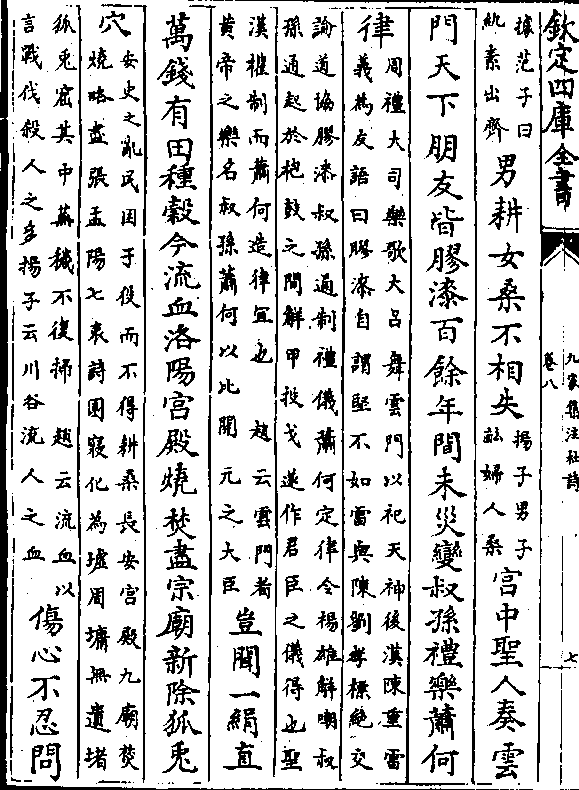 欽定四庫全書
九家集注杜詩
卷八
七
據范子曰
紈素出齊
男耕女桑不相失
揚子男子
畝婦人桑
宮中聖人奏雲
門天下朋友皆膠漆百餘年間未災變叔孫禮樂蕭何
律
周禮大司樂歌大呂舞雲門以祀天神後漢陳重雷
義為友語曰膠漆自謂堅不如雷與陳劉孝標絶交
論道協膠漆叔孫通制禮儀蕭何定律令楊雄解嘲叔
孫通起於枹鼓之間解甲投戈遂作君臣之儀得也聖
漢禮制而蕭何造律宜也 趙云雲門者
黃帝之樂名叔孫蕭何以比開元之大臣
豈聞一絹直
萬錢有田種穀今流血洛陽宮殿燒焚盡宗廟新除狐兎
穴
安史之亂民困于役而不得耕桑長安宮殿九廟焚
燒略盡張孟陽七哀詩園寢化為墟周墉無遺堵
狐兎窟其中蕪穢不復掃 趙云流血以
言戰伐殺人之多揚子云川谷流人之血
傷心不忍問